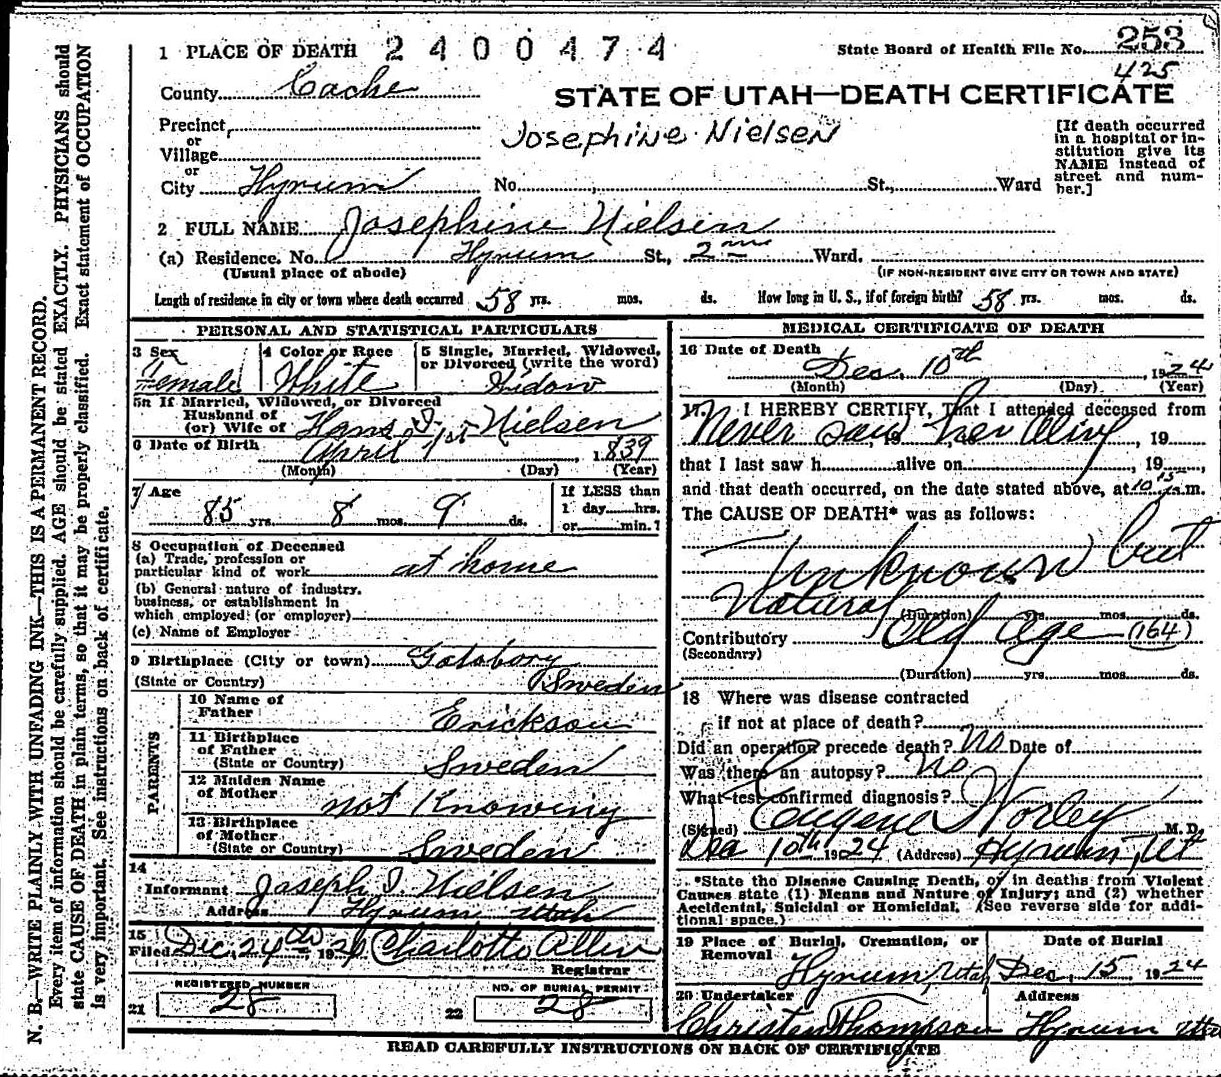 1 PLACE OF DEATH 2400474 State Board of Health File No. 253
425
County Cache
STATE OF UTAH—DEATH CERTIFICATE
Precinct
or
Village
or
City Hyrum No. St., Ward
Josephine Nielsen
[If death occurred
in a hospital or in-
stitution give its
NAME instead of
street and num-
ber.]
2 FULL NAME Josephine Nielsen
(a) Residence. No. Hyrum St., 2nd Ward.
(Usual place of abode) (IF NON-RESIDENT GIVE CITY OR TOWN AND STATE)
Length of residence in city or town where death occurred 58 yrs. mos. ds. How long in U. S., if of foreign birth? 58 yrs. mos. ds.
PERSONAL AND STATISTICAL PARTICULARS
3 Sex 4 Color or Race 5 Single, Married, Widowed,
or Divorced (write the word)
Female White Widow
5a If Married, Widowed, or Divorced
Husband of
(or) Wife of Hans I. Nielsen
6 Date of Birth April 1st, 1839
(Month) (Day) (Year)
7 Age
85 yrs. 8 mos. 9 ds.
If LESS than
1 day hrs.
or min.?
8 Occupation of Deceased
(a) Trade, profession or
particular kind of work at home
(b) General nature of industry,
business, or establishment in
which employed (or employer)
(c) Name of Employer
9 Birthplace (City or town)
(State or Country) Sweden
PARENTS
10 Name of
Father Erickson
11 Birthplace
of Father
(State or Country) Sweden
12 Maiden Name
of Mother not Knowing
13 Birthplace
of Mother
(State or Country) Sweden
14
Informant Joseph I. Nielsen
Address Hyrum Utah
15
Filed Dec. 24th, 1924 Charlotte Allen
Registrar
REGISTERED NUMBER NO. OF BURIAL PERMIT
21 28 22 28
MEDICAL CERTIFICATE OF DEATH
16 Date of Death
Dec. 10th, 1924
(Month) (Day) (Year)
17. I HEREBY CERTIFY, That I attended deceased from
Never saw her alive, 19 , 19
that I last saw h alive on , 19 ,
and that death occurred, on the date stated above, at 10 15 m.
The CAUSE OF DEATH* was as follows:
Unknown but
Natural
(Duration) yrs. mos. ds.
Contributory Old Age (164)
(Secondary)
(Duration) yrs. mos. ds.
18 Where was disease contracted
if not at place of death?
Did an operation precede death? No Date of
Was there an autopsy? No
What test confirmed diagnosis?
(Signed) Eugene Worley M. D.
Dec 10th 1924 (Address) Hyrum, Ut
*State the Disease Causing Death, or in deaths from Violent
Causes state (1) Means and Nature of Injury; and (2) whether
Accidental, Suicidal or Homicidal. (See reverse side for addi-
tional space.)
19 Place of Burial, Cremation, or
Removal
Date of Burial
Hyrum, Utah Dec. 15 1924
20 Undertaker Address
Christen Thompson Hyrum Utah
READ CAREFULLY INSTRUCTIONS ON BACK OF CERTIFICATE
N. B.—WRITE PLAINLY WITH UNFADING INK—THIS IS A PERMANENT RECORD.
Every item of information should be carefully supplied. AGE should be stated EXACTLY. PHYSICIANS should
state CAUSE OF DEATH in plain terms, so that it may be properly classified. Exact statement of OCCUPATION
is very important. See instructions on back of certificate.